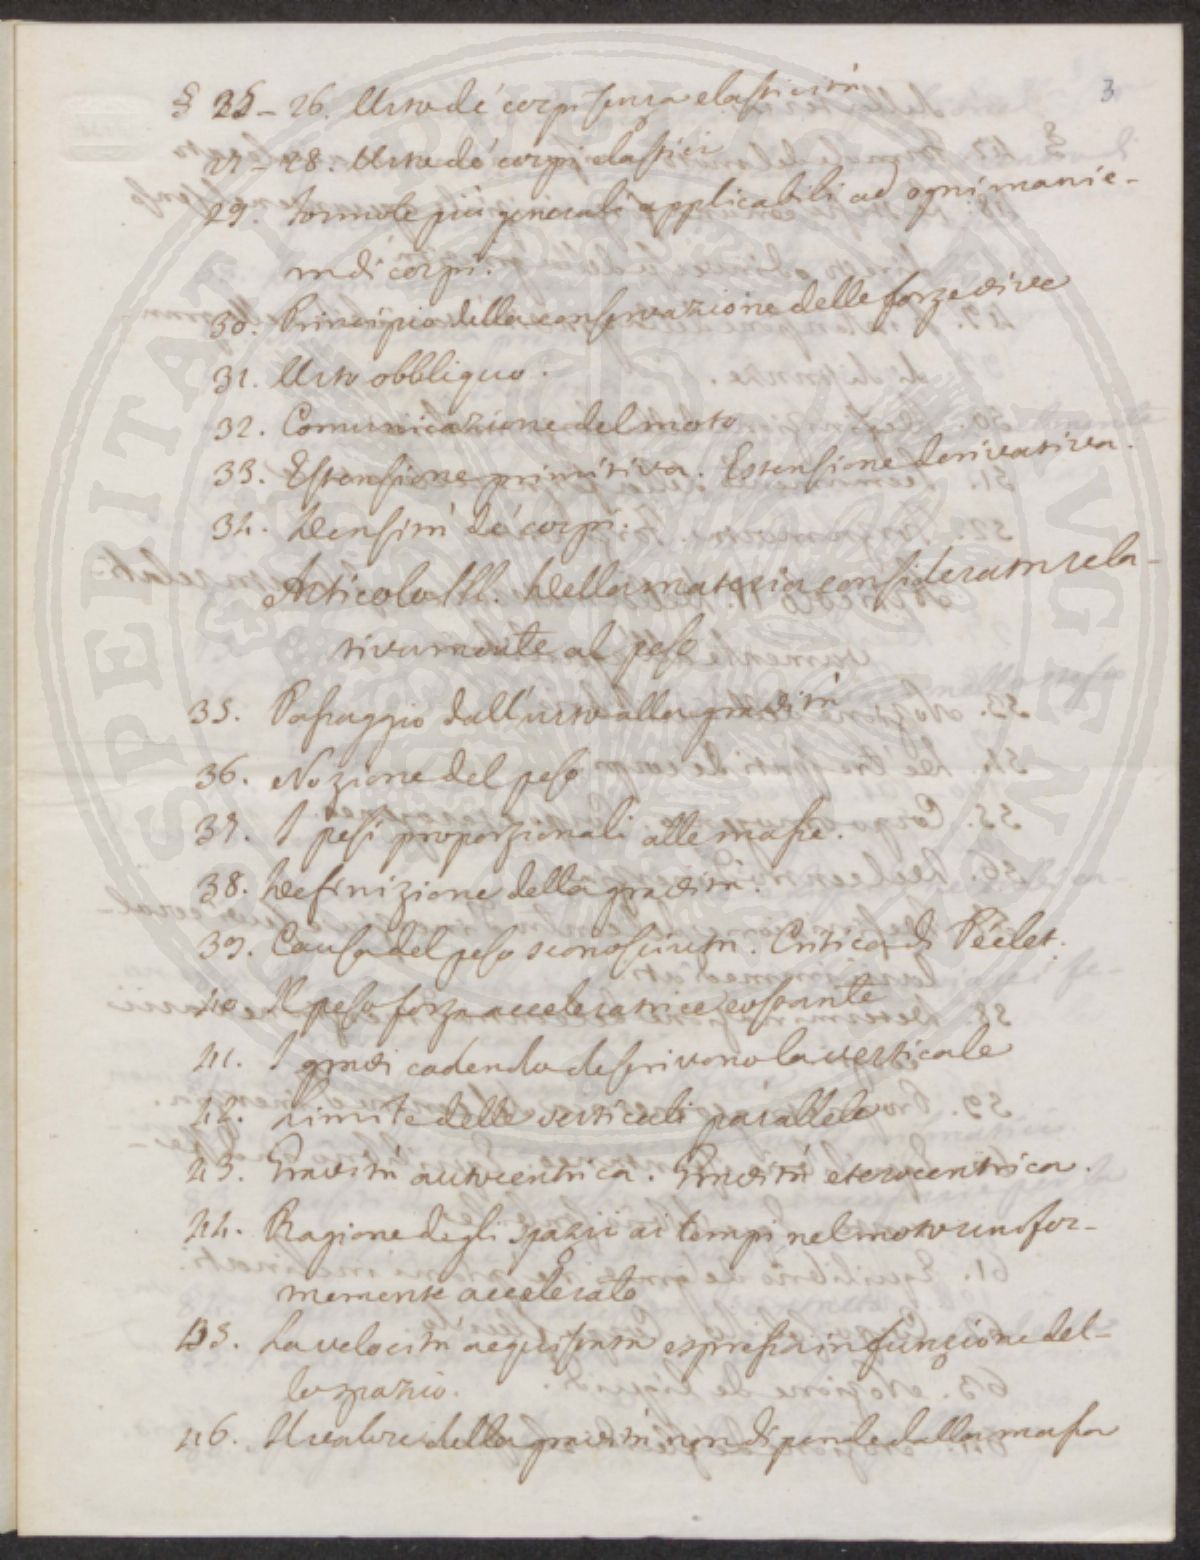 3
§ 25-26. Urto de' corpi senza elasticità
27-28. Urto de' corpi elastici
29. Formole più generali applicabili ad ogni manie-
ra di corpi.
30. Principio della conservazione delle forze vive
31. Urto obbliquo.
32. Comunicazione del moto
33. Estensione primitiva. Estensione derivativa.
34. Densità de' corpi.
Articolo III. Della materia considerata rela-
tivamente al peso
35. Passaggio dall'urto alla gravità
36. Nozione del peso
37. I pesi proporzionali alle masse.
38. Definizione della gravità.
39. Causa del peso sconosciuta. Critica di Péclet.
40. Il peso forza acceleratrice costante
41. I gravi cadendo descrivono la verticale
42. Limite delle verticali parallele
43. Gravità autocentrica. Gravità eterocentrica.
44. Ragione degli spazii ai tempi nel moto unifor-
memente accelerato
45. La velocità acquistata espressa in funzione del-
lo spazio.
46. Il valore della gravità non dipende dalla massa
SPERITATI PUBLICAE AUGENDAE